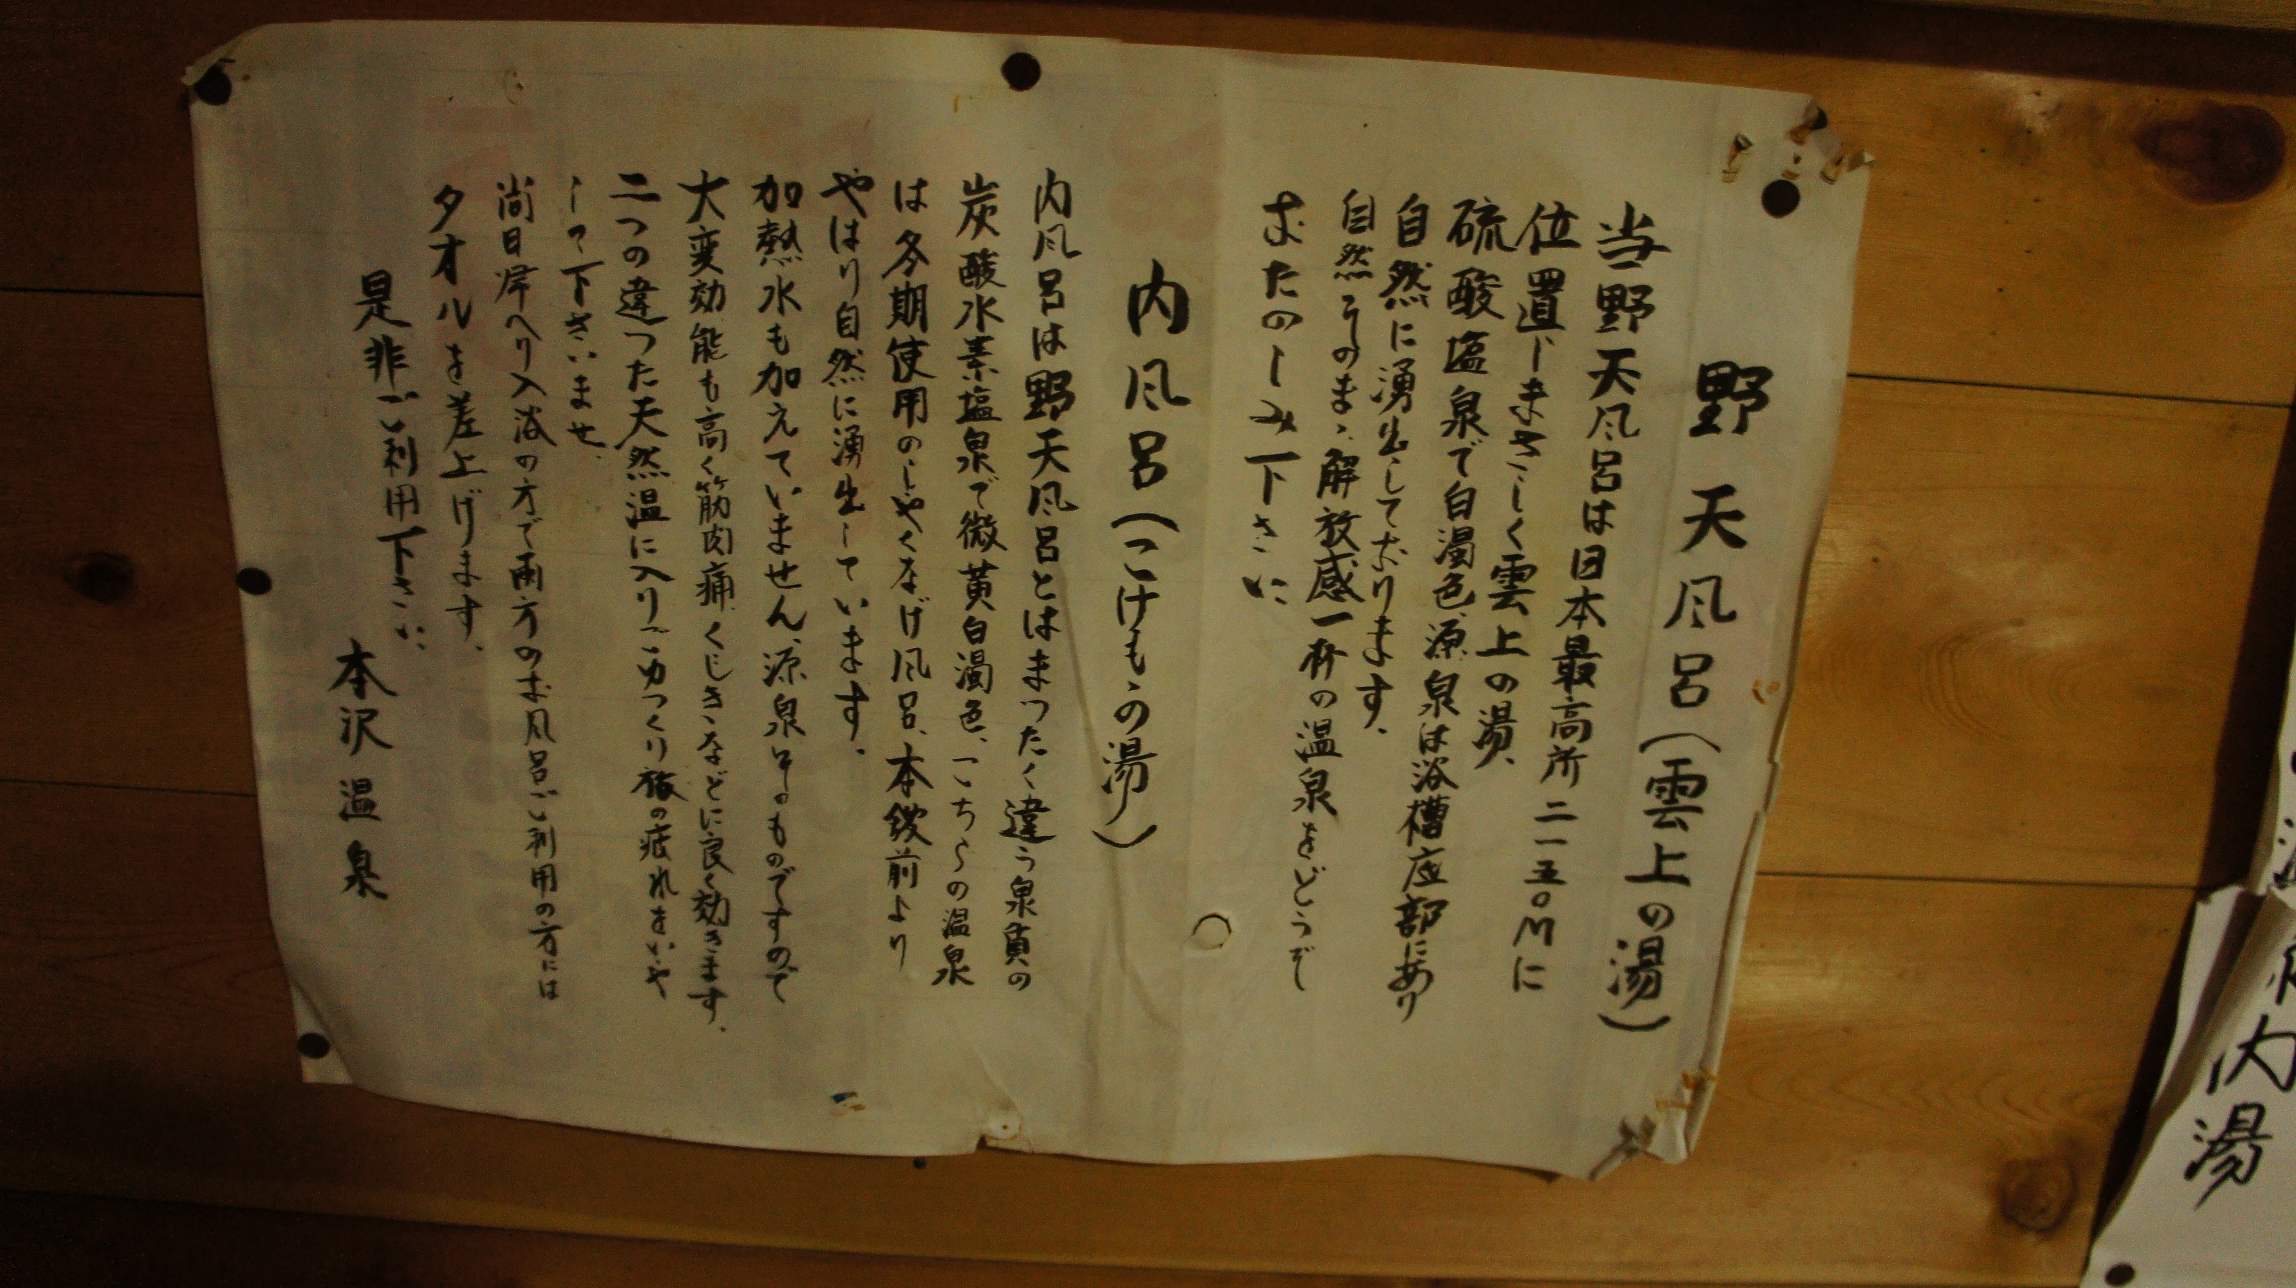 野天風呂(雲上の湯)
当野天風呂は日本最高所二一五〇Mに
位置しまさしく雲上の湯、
硫酸塩泉で白濁色、源泉は浴槽底部にあり
自然に湧出しております。
自然そのまゝ解放感一杯の温泉をどうぞ
おたのしみ下さい
内風呂(こけもゝの湯)
内風呂は野天風呂とはまったく違う泉質の
炭酸水素塩泉で微黄白濁色、こちらの温泉
は冬期使用のしやくなげ風呂、本館前より
やはり自然に湧出しています。
加熱水も加えていません、源泉そのものですので
大変効能も高く筋肉痛、くじきなどに良く効きます。
二つの違った天然温に入りごゆっくり旅の疲れをいや
して下さいませ、
尚日帰へり入浴の方で両方のお風呂ご利用の方には
タオルを差上げます、
是非ご利用下さい、
本沢温泉
内湯